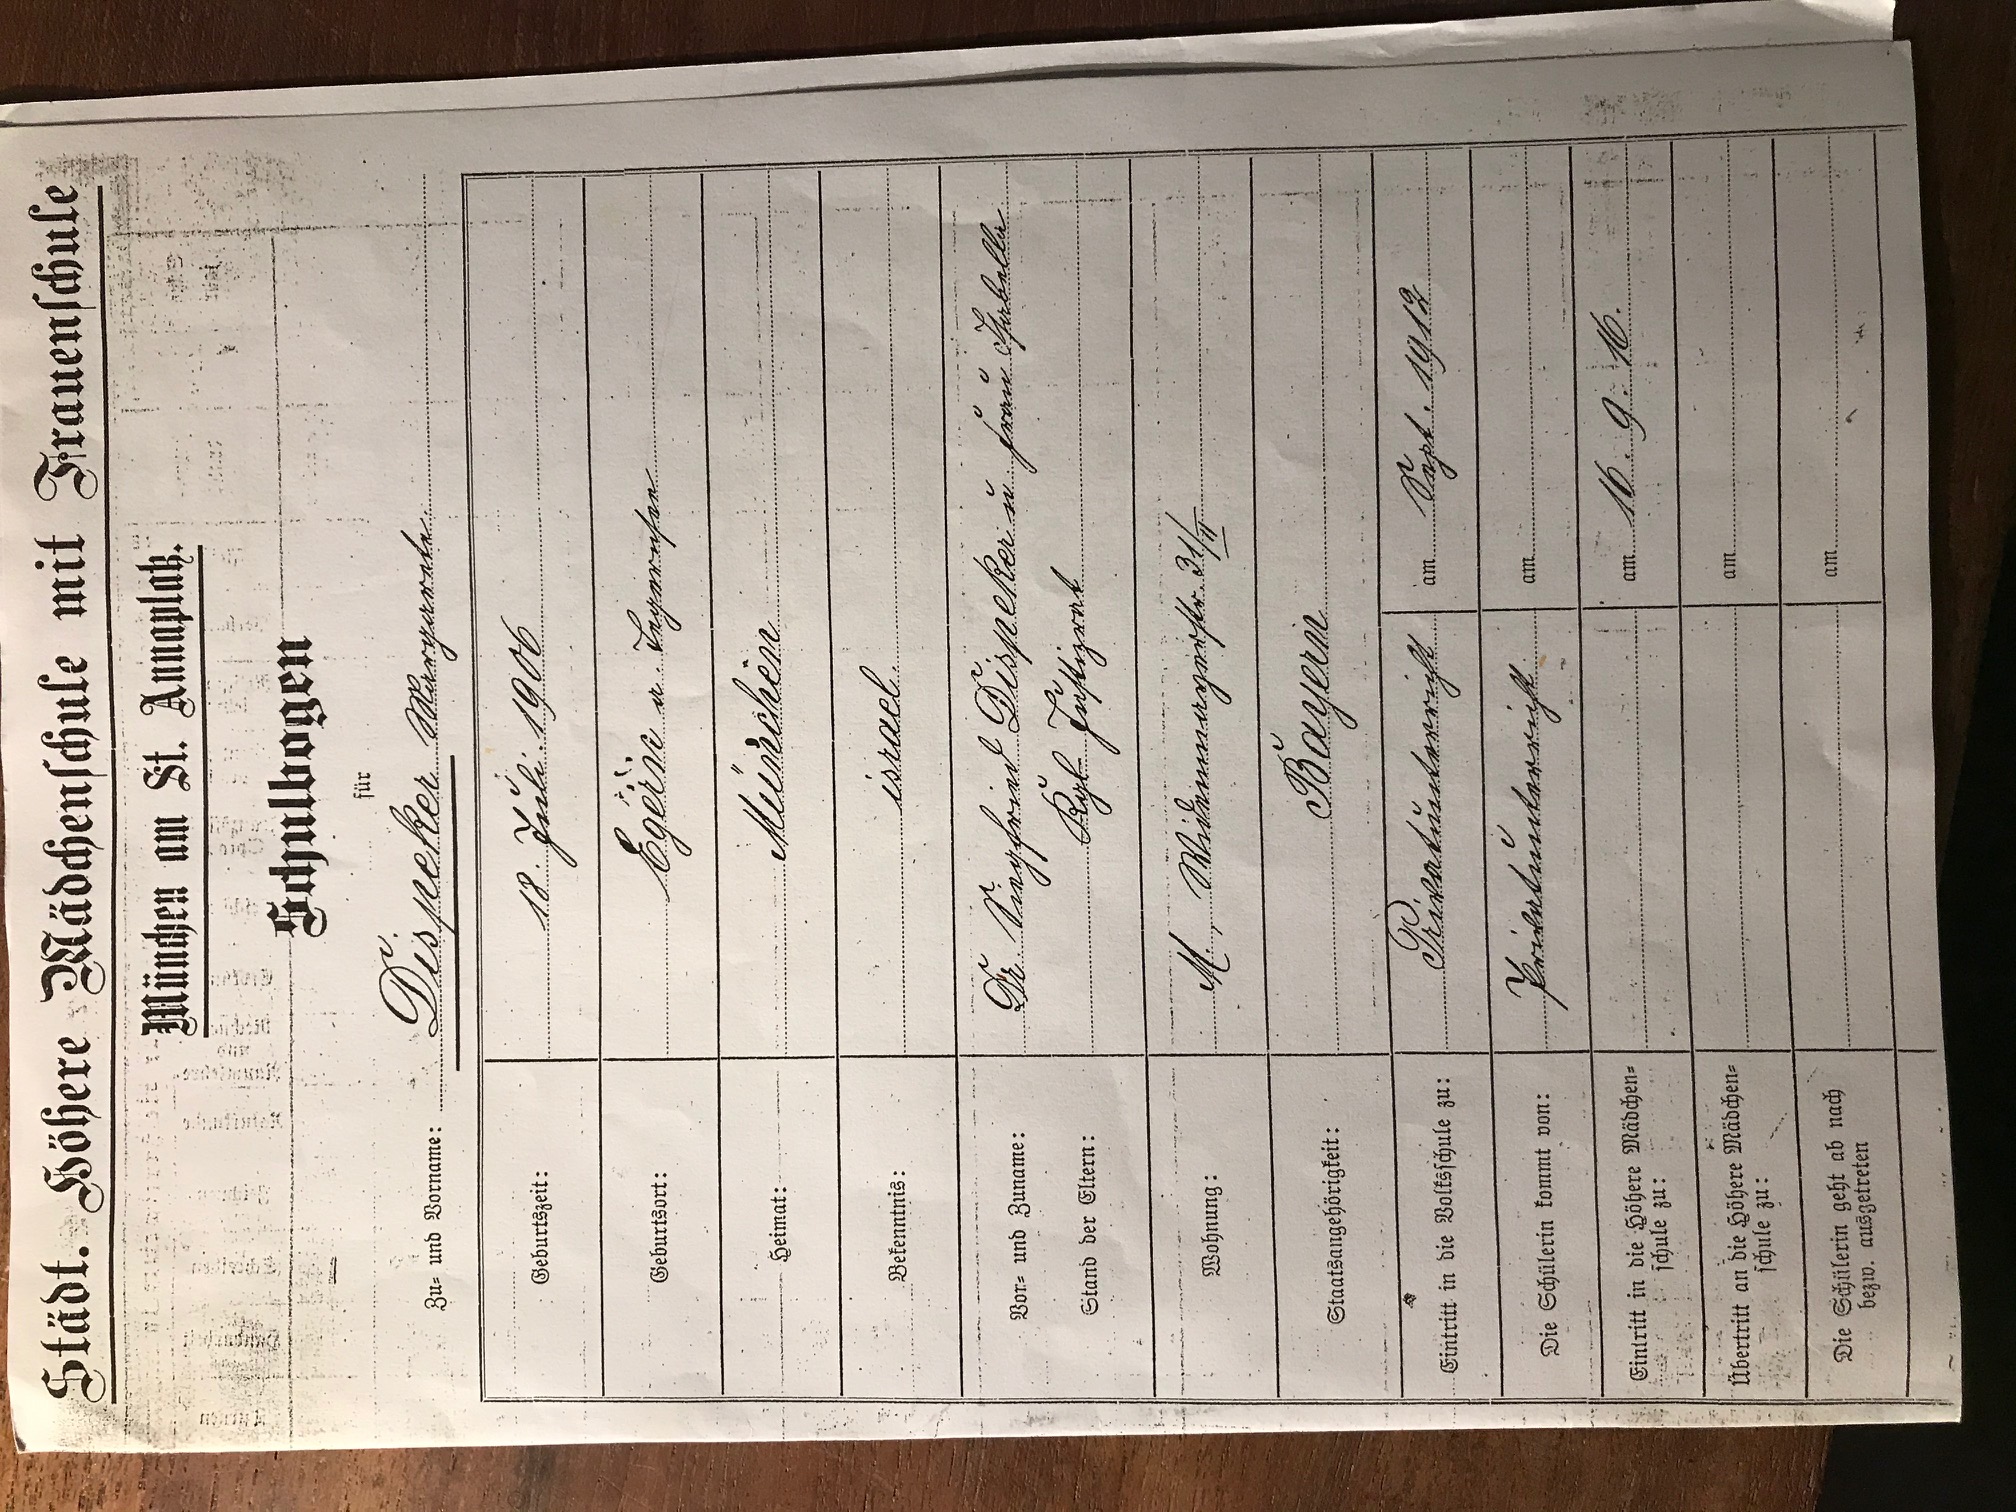 Städt. Höhere Mädchenschule mit Frauenschule
München am St. Annaplatz.
Schulbogen
für
Zu- und Vorname: Dispeker Margarete
Geburtszeit: 18. Juli 1906
Geburtsort: Egern a. Tegernsee
Heimat: München
Bekenntnis: israel.
Vor- und Zuname: Dr. Siegfried Dispeker u. Frau Isabella
Stand der Eltern: Kgl. Justizrat
Wohnung: M., Widenmayerstr. 31/II
Staatsangehörigkeit: Bayern
Eintritt in die Volksschule zu: Privatunterricht am Sept. 1912
Die Schülerin kommt von: Privatunterricht am
Eintritt in die Höhere Mädchen-
schule zu: am 16. 9. 16.
Übertritt an die Höhere Mädchen-
schule zu: am
Die Schülerin geht ab nach
bezw. ausgetreten am